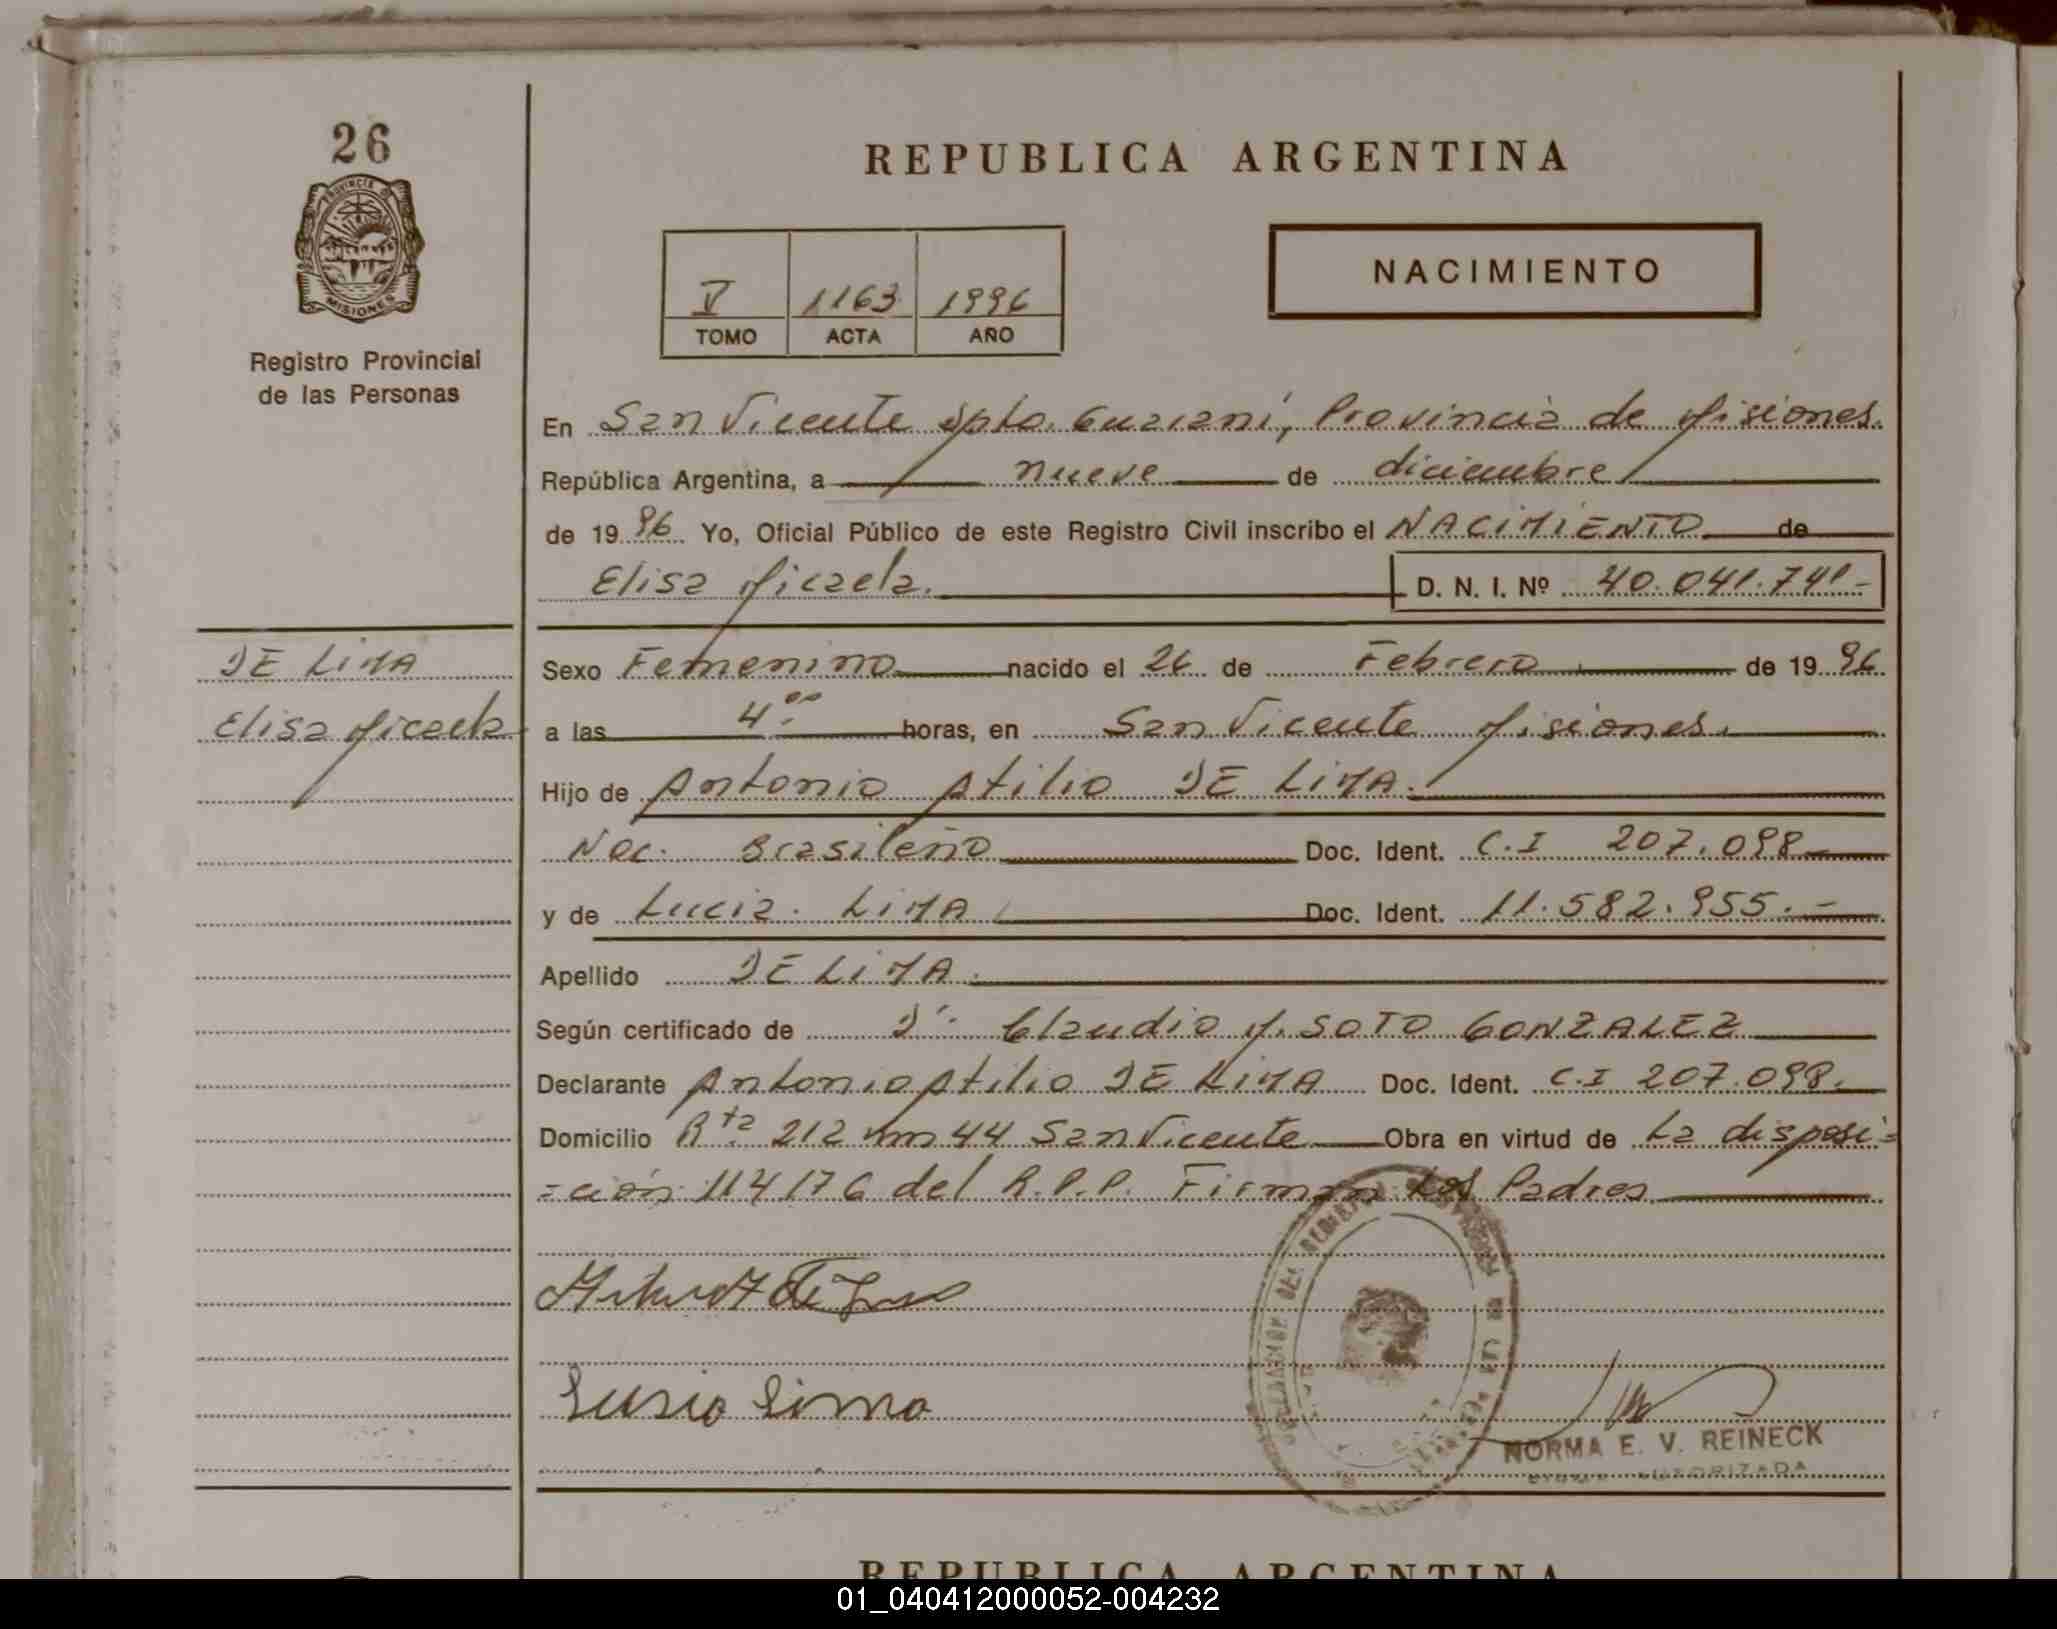 26
REPUBLICA ARGENTINA
PROVINCIA DE
MISIONES
Registro Provincial
de las Personas
V 1163 1996
TOMO ACTA AÑO
NACIMIENTO
En San Vicente Dpto. Guaraní, Provincia de Misiones.
República Argentina, a nueve de diciembre
de 19 96 Yo, Oficial Público de este Registro Civil inscribo el NACIMIENTO de
Elisa Micaela. D. N. I. Nº 40.041.741.-
DE LIMA
Elisa Micaela
Sexo Femenino nacido el 26 de Febrero de 19 96
a las 4.00 horas, en San Vicente Misiones.
Hijo de Antonio Atilio DE LIMA.
Nac. Brasileño Doc. Ident. C.I 207.098
y de Lucia LIMA Doc. Ident. 11.582.955.-
Apellido DE LIMA.
Según certificado de Dr. Claudio M. SOTO GONZALEZ
Declarante Antonio Atilio DE LIMA Doc. Ident. C.I 207.098.
Domicilio Rta. 212 km 44 San Vicente Obra en virtud de La disposi=
=ción 114/76 del R.P.P. Firman Los Padres
Lusia Lima
NORMA E. V. REINECK
FIRMA AUTORIZADA
REPUBLICA ARGENTINA
01_040412000052-004232